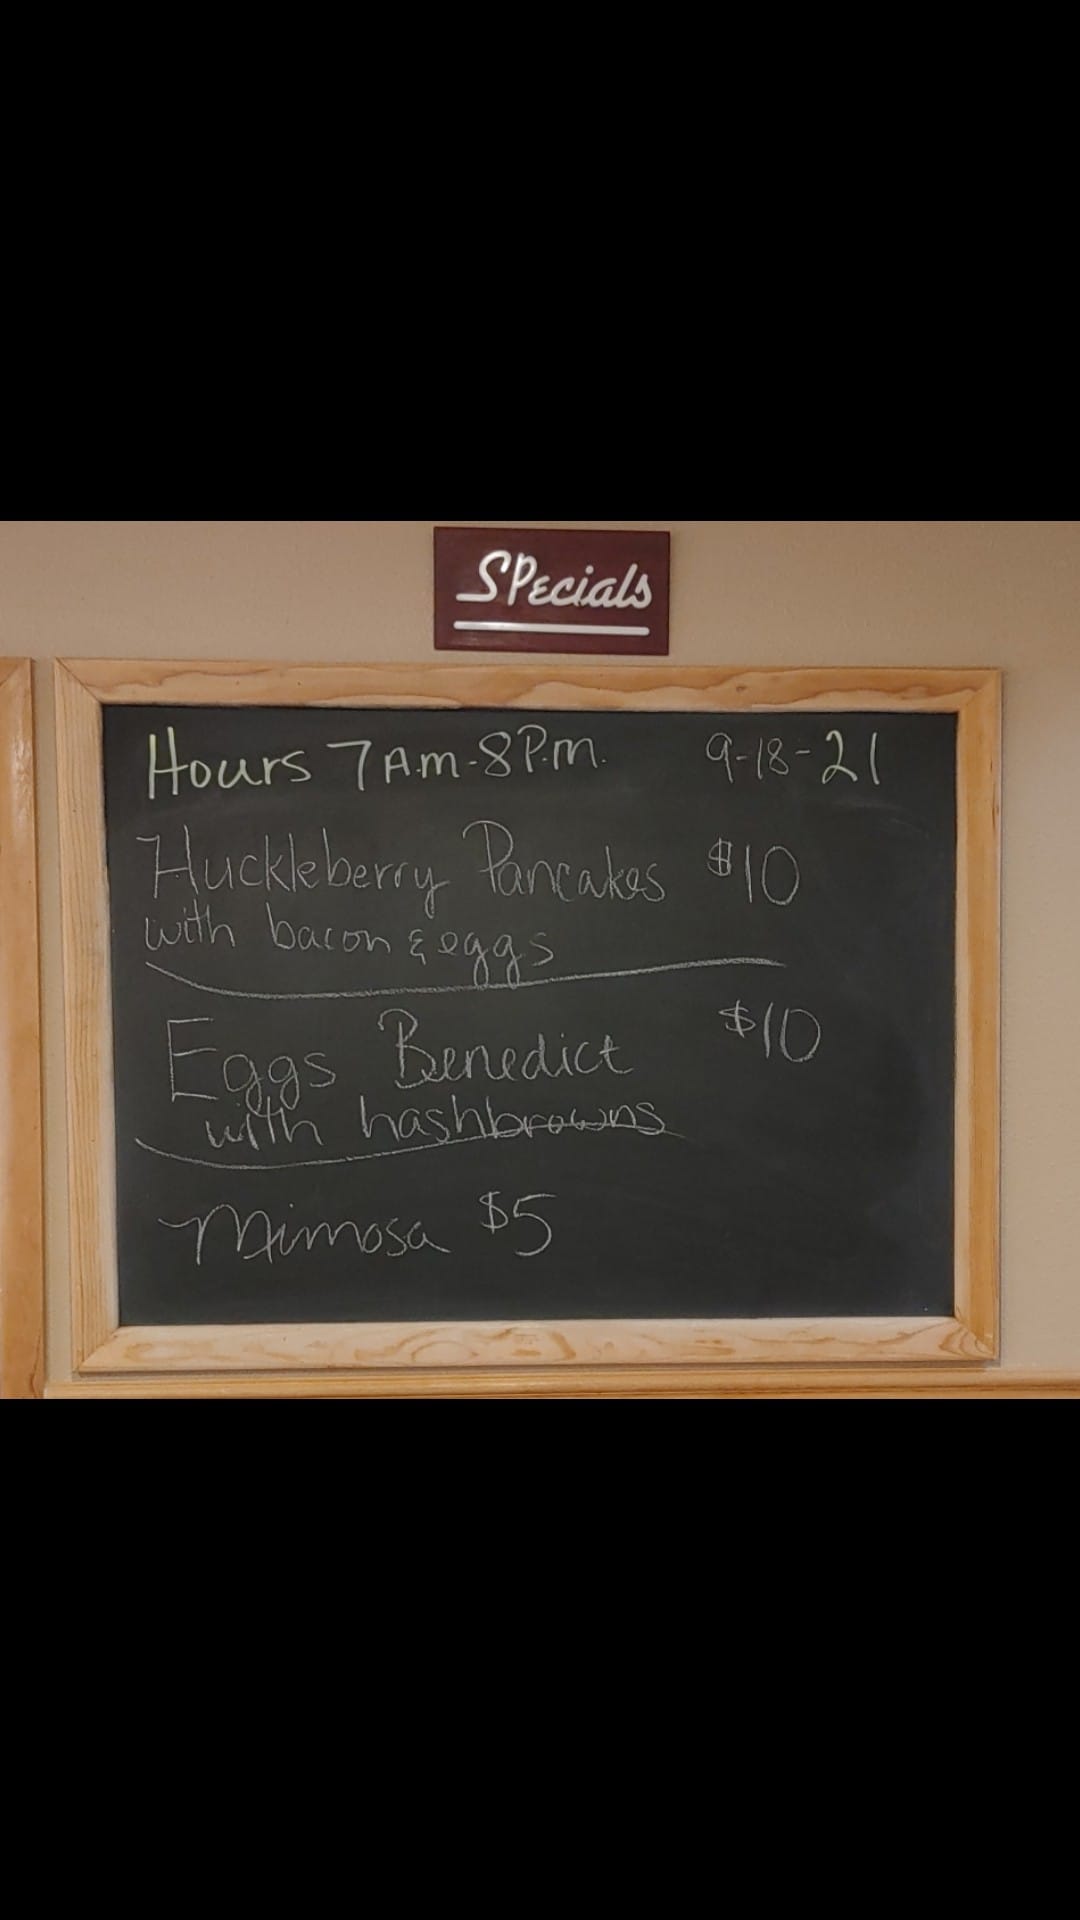 SPecials
Hours 7 A.m-8P.m. 9-18-21
Huckleberry Pancakes $10
with bacon & eggs
Eggs Benedict $10
with hashbrowns
Mimosa $5